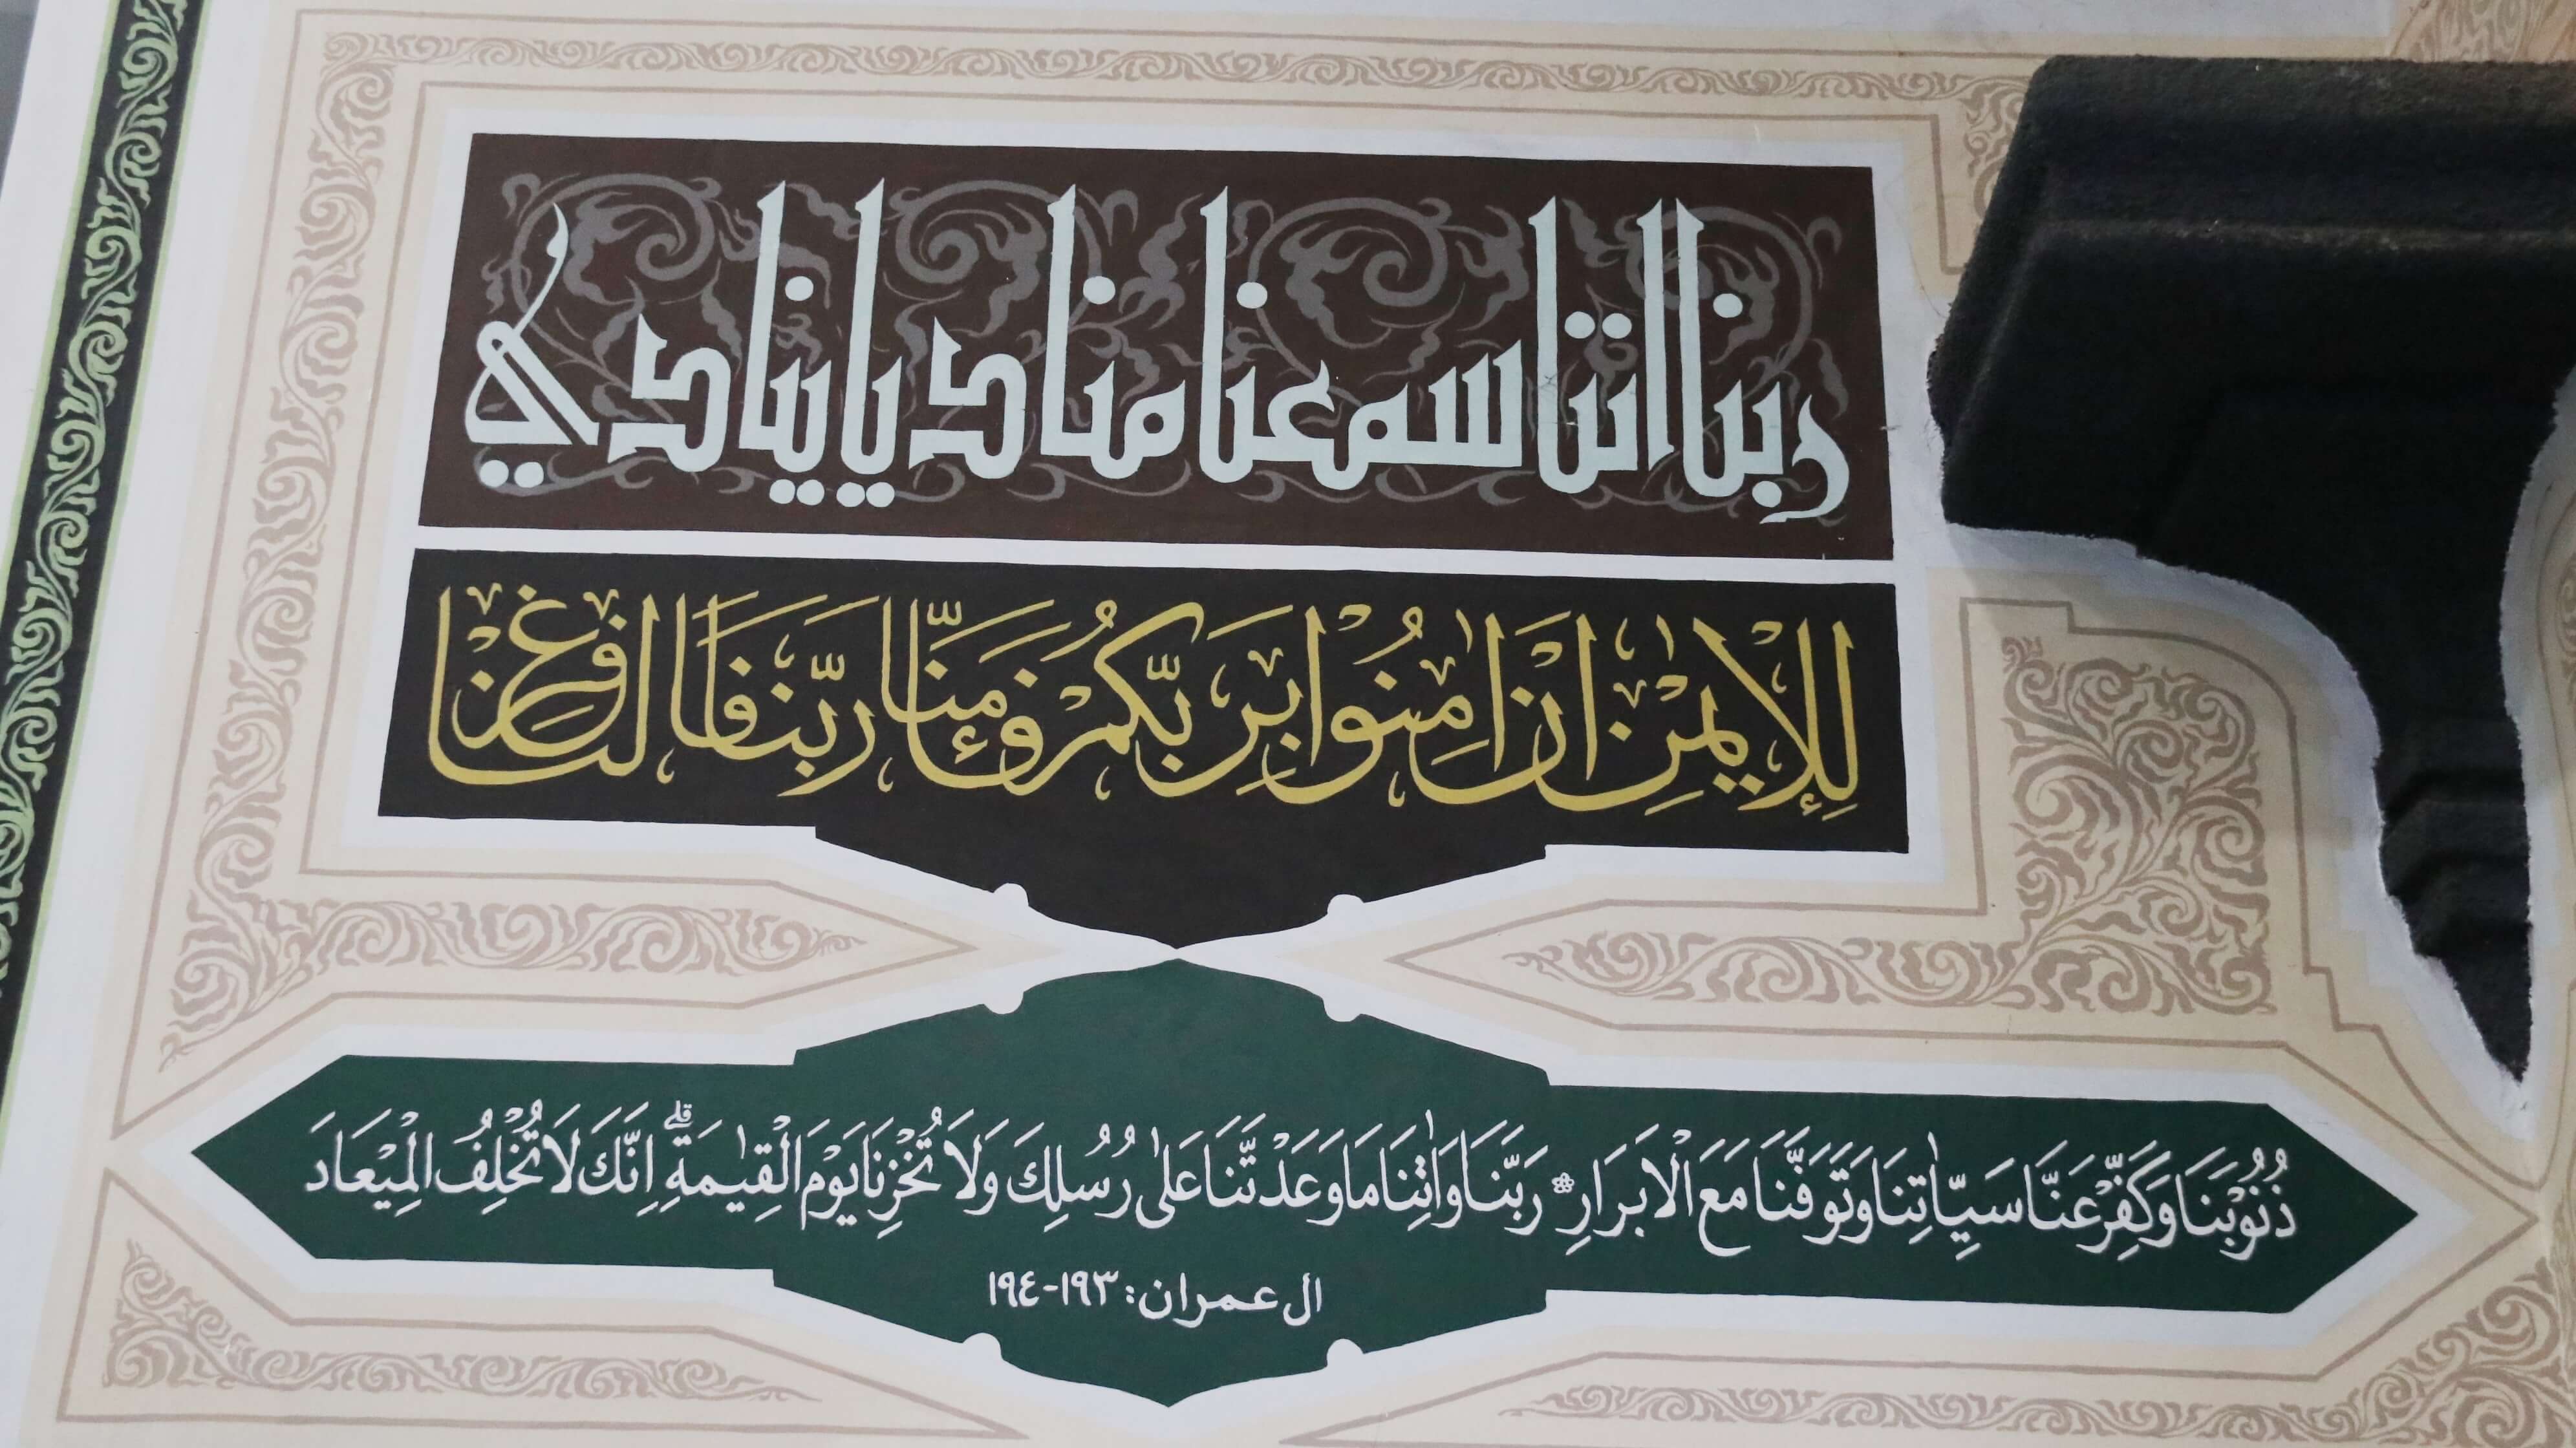 ربنا اننا سمعنا منا ديا ينادي
لِلْإِيمٰنِ اَنْ اٰمِنُوْا بِرَبِّكُمْ فَـَٔامَنَّا رَبَّنَا فَاغْفِرْ لَنَا
ذُنُوْبَنَا وَكَفِّرْ عَنَّا سَيِّاٰتِنَا وَتَوَفَّنَا مَعَ الْاَبْرَارِ ۞ رَبَّنَا وَاٰتِنَا مَا وَعَدْتَّنَا عَلٰى رُسُلِكَ وَلَا تُخْزِنَا يَوْمَ الْقِيٰمَةِ ۗ اِنَّكَ لَا تُخْلِفُ الْمِيْعَادَ
ال عمران: ١٩٣-١٩٤